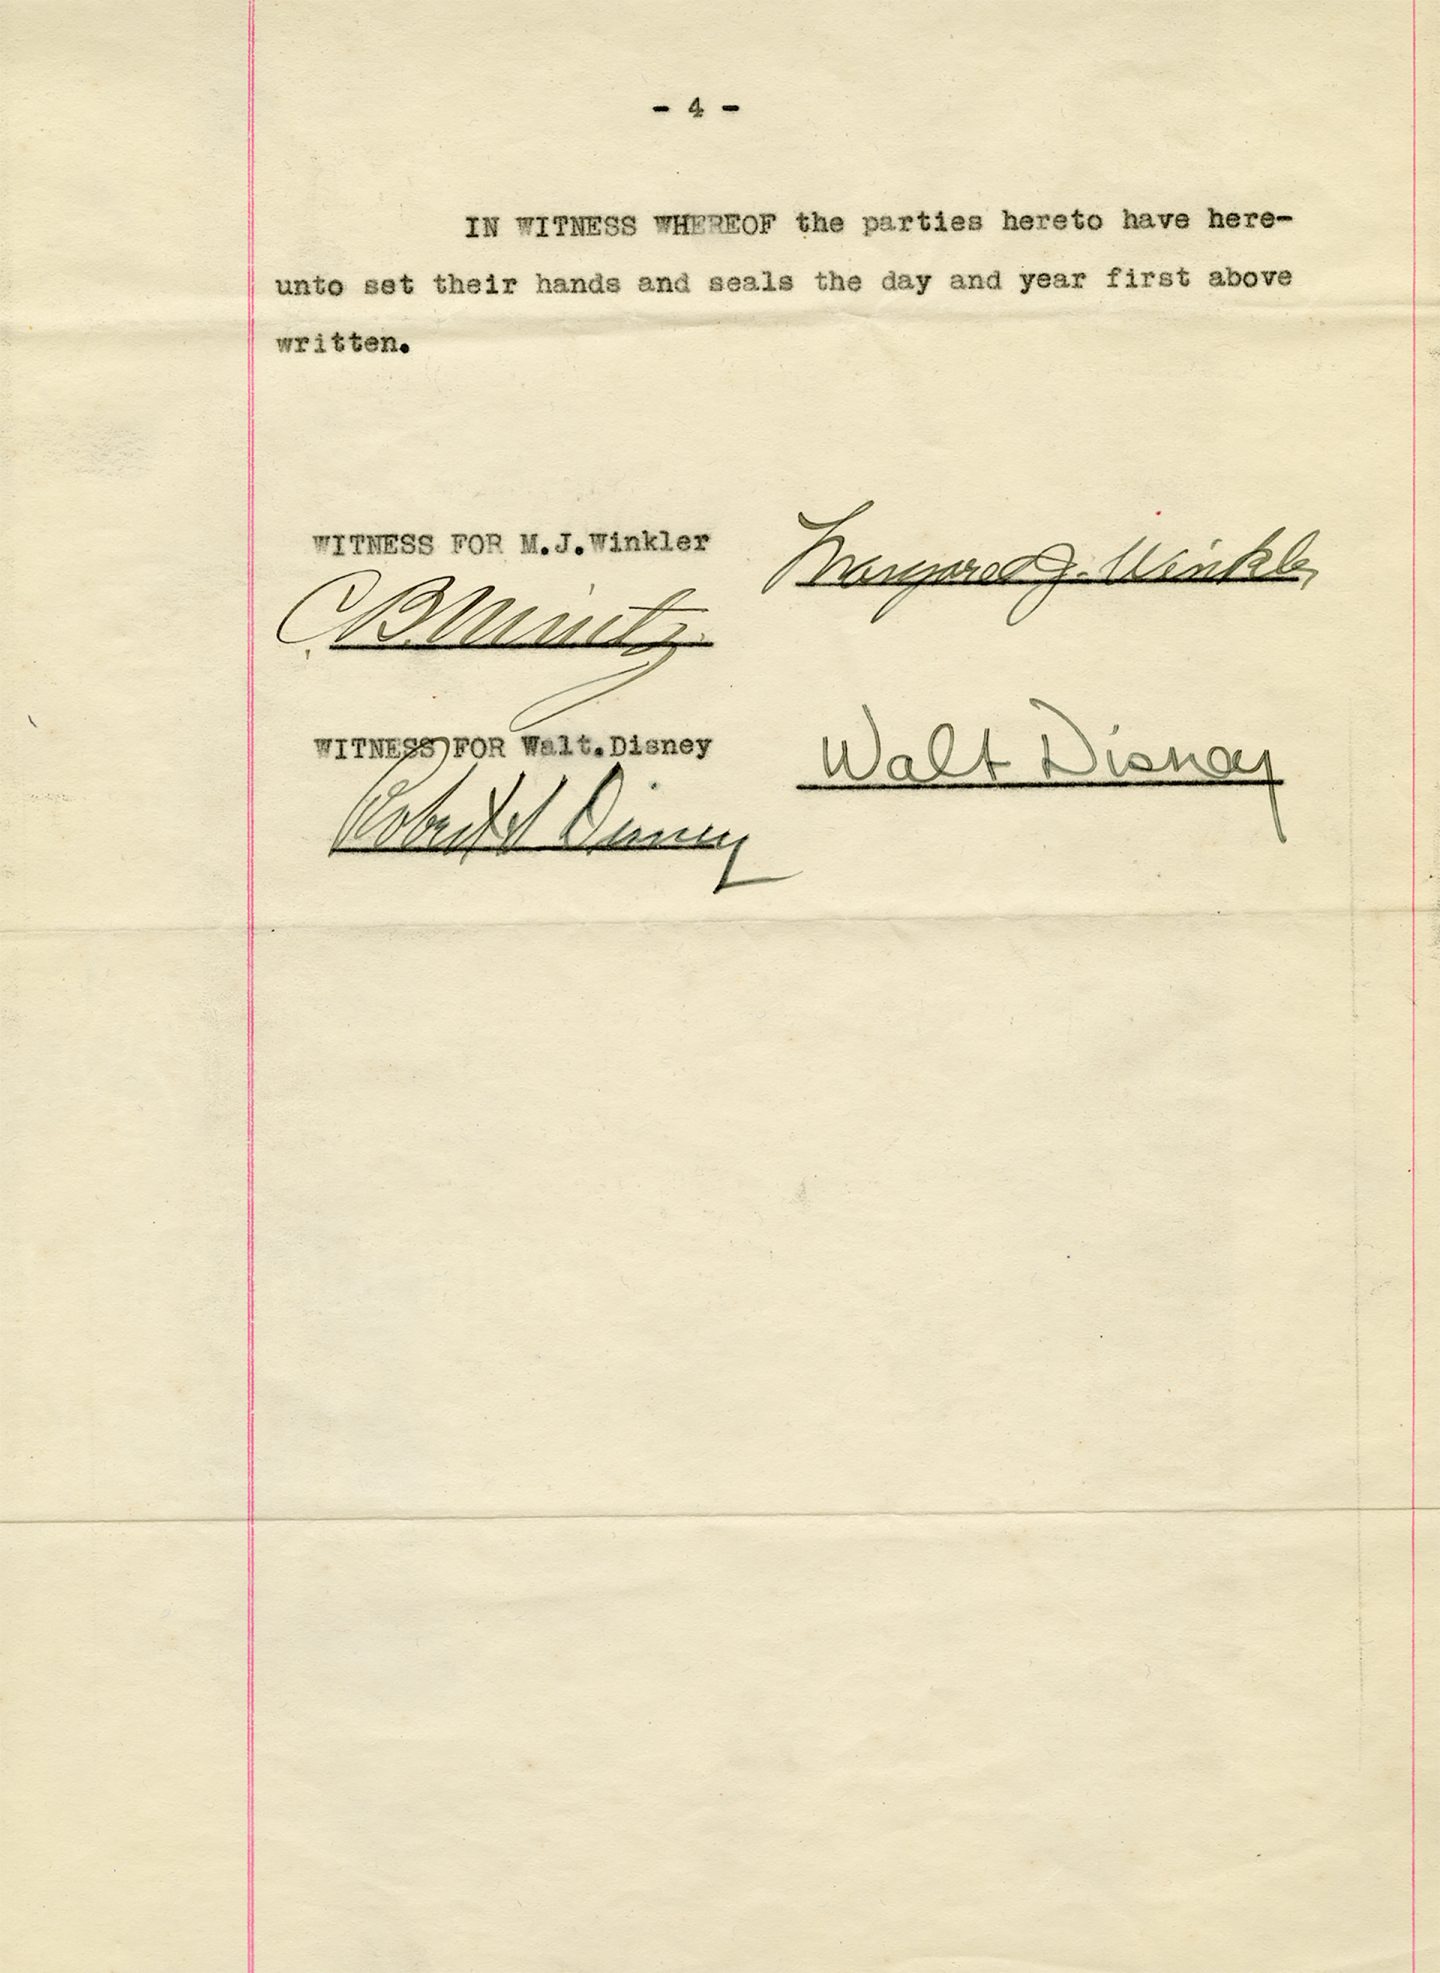 - 4 -
IN WITNESS WHEREOF the parties hereto have here-
unto set their hands and seals the day and year first above
written.
WITNESS FOR M.J.Winkler
Margaret J. Winkler
C.B.Mintz.
WITNESS FOR Walt.Disney
Walt Disney
Robert S Disney